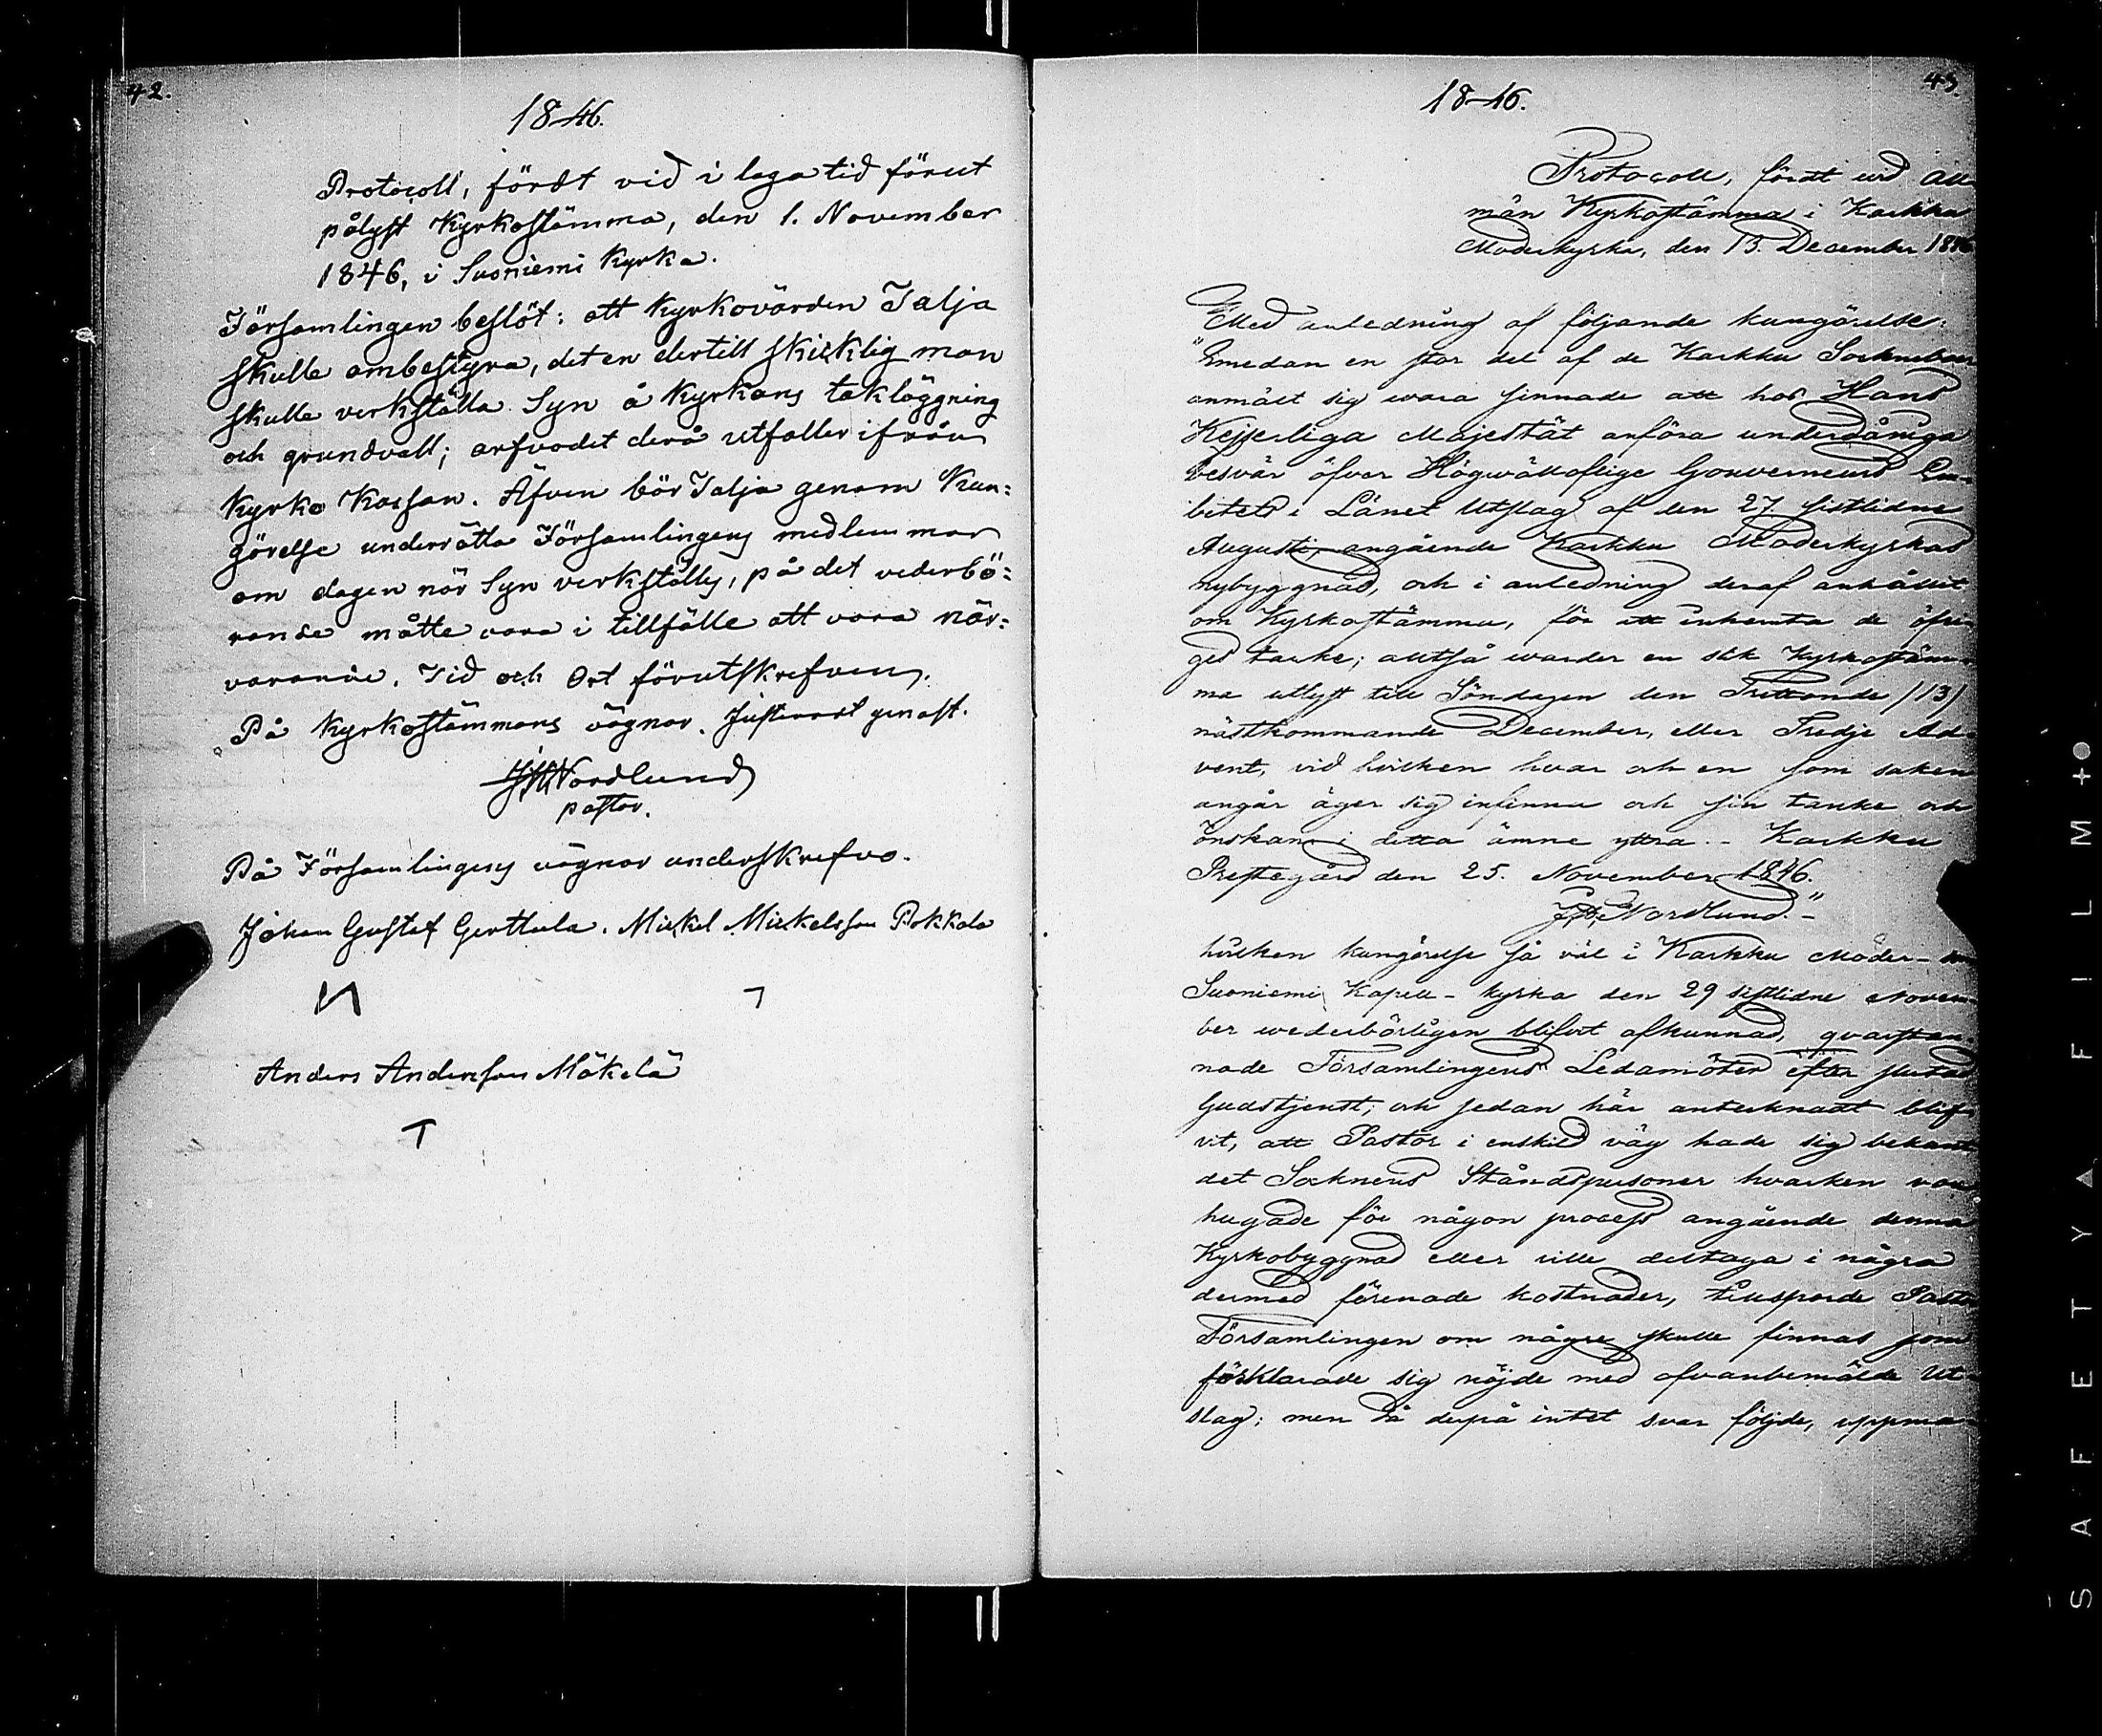 42.
1846.
Protocoll, fördt vid i laga tid förut
pålyst Kyrkostämma, den 1. November
1846, i Suoniemi Kyrka.
Församlingen beslöt: att Kyrkovärden Talja
skulle ombestyra, det en dertill skicklig man
skulle verkställa Syn å Kyrkans takläggning
och grundvall; arfvodet derå utfaller ifrån
Kyrko Kassan. Äfven bör Talja genom Kun:
görelse underrätta Församlingens medlemmar
om dagen när Syn verkställes, på det vederbö:
rande måtte vara i tillfälle att vara när:
varande. Tid och Ort förutskrefven.
På Kyrkostämmans vägnar. Justeradt genast.
Nordlund
pastor.
På Församlingens vägnar underskrefvo.
Johan Gustaf Gerttula. Mickel Mickelsson Pokkala
Anders Andersson Mäkelä
43
1846.
Protocoll, fördt vid all-
män Kyrkostämma i Karkku
Moderkyrka, den 13. December 1846
Med anledning af följande kungörelse:
"Emedan en stor del af de Karkku Sockneboer
anmält sig wara sinnade att hos Hans
Kejserliga Majestät anföra underdåniga
besvär öfver Högwälloflige Gouverneurs Em-
betets i Länet Utslag af den 27 sistlidne
Augusti, angående Karkku Moderkyrkas
nybyggnad, och i anledning deraf anhållit
om Kyrkostämma, för att inhemta de öfri-
ges tanke; alltså warder en slik Kyrkostäm-
ma utlyst till Söndagen den Trettonde /13/
nästkommande December, eller Tredje Ad-
vent, vid hvilken hvar och en som saken
angår äger sig infinna och sin tanke och
önskan i detta ämne yttra. - Karkku
Prestegård den 25. November 1846.
Nordlund." -
hvilken kungörelse så väl i Karkku Moder-
Suoniemi Kapell-kyrka den 29 sistlidne Novem-
ber wederbörligen blifvit afkunnad, qvarstan-
nade Församlingens Ledamöter efter slutad
Gudstjenst; och sedan här antecknadt blif-
vit, att Pastor i enskild väg hade sig bekant
det Socknens Ståndspersoner hvarken voro
hugade för någon process angående denna
Kyrkobyggnad eller ville deltaga i några
dermed förenade kostnader, tillsporde Pastor
Församlingen om någre skulle finnas som
förklarade sig nöjde med ofvanbemälde Ut-
slag; men då derpå intet svar följde, uppma-
SAFETY FILM